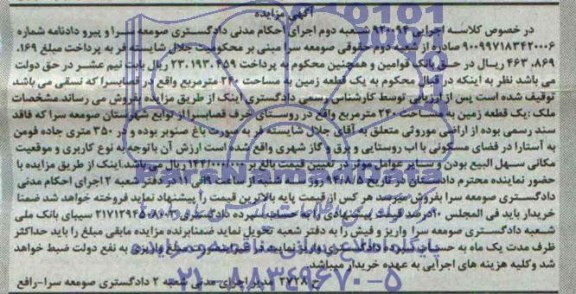 آگهی مزایده
در خصوص کلاسه اجرایی ۱۲۰۰۹۴ شعبه دوم اجرای احکام مدنی دادگستری صومعه سرا و پیرو دادنامه شماره
۹۰۰۹۹۷۱۸۳۴۲۰۰۰۶ صادره از شعبه دوم حقوقی صومعه سرا مبنی بر محکومیت جلال شایسته فر به پرداخت مبلغ ۱۶۹.
۴۶۳.۸۶۹ ریال در حق بانک قوامین و همچنین محکوم به پرداخت ۲۳.۱۹۳.۴۵۹ ریال بابت نیم عشر در حق دولت
می باشد نظر به اینکه در قبال محکوم به یک قطعه زمین به مساحت ۲۴۰ مترمربع واقع در قصابسرا که نسقی می باشد
توقیف شده است پس از ارزیابی توسط کارشناس رسمی دادگستری اینک از طریق مزایده بفروش می رساند مشخصات
ملک :یک قطعه زمین به مساحت ۲۴۰ مترمربع واقع در روستای قصابسرا از توابع شهرستان صومعه سرا که فاقد
سند رسمی بوده از اراضی موروثی متعلق به آقای جلال شایسته فر به صورت باغ صنوبر بوده و در ۳۵۰ متری جاده فومن
به آستارا در فضای مسکونی با آب روستایی و برق و گاز شهری واقع شده است ارزش آن باتوجه به نوع کاربری و موقعیت
مکانی سهل البیع بودن و سایر عوامل موثر در تعیین قیمت بالغ بر ریال می باشد.اینک از طریق مزایده با
حضور نماینده محترم دادستان در تاریخ روز شنبه از ساعت ۹ الی ۱۱ در دفتر شعبه ۲ اجرای احکام مدنی
دادگستری صومعه سرا بفروش میرسد هر کس از قیمت پایه بالاترین قیمت را پیشنهاد نماید فروخته خواهد شد ضمنا
خریدار باید فی المجلس ۱۰درصد قیمت پیشنهادی را به حساب سپرده دادگستری ۲۱۷۱۲۹۴۵۰۸۰۰۴ سیبای بانک ملی
شعبه دادگستری صومعه سرا واریز و فیش را به دفتر شعبه تحویل نماید ضمنابرنده مزایده مابقی مبلغ را باید حداکثر
ظرف مدت یک ماه به حساب سپرده دادگستری واریز نماید در غیر اینصورت مبلغ واریزی به نفع دولت ضبط خواهد
شد وکلیه هزینه های اجرایی به عهده خریدار میباشد.
ح ۲۷۲۸ مدیر اجرای مدنی شعبه ۲ دادگستری صومعه سرا-رافع
ParsNamadData
پایگاه اطلاع رسانی مناقصه و مزایده
۰۲۱-۸۸۳۴۹۶۷۰-۵